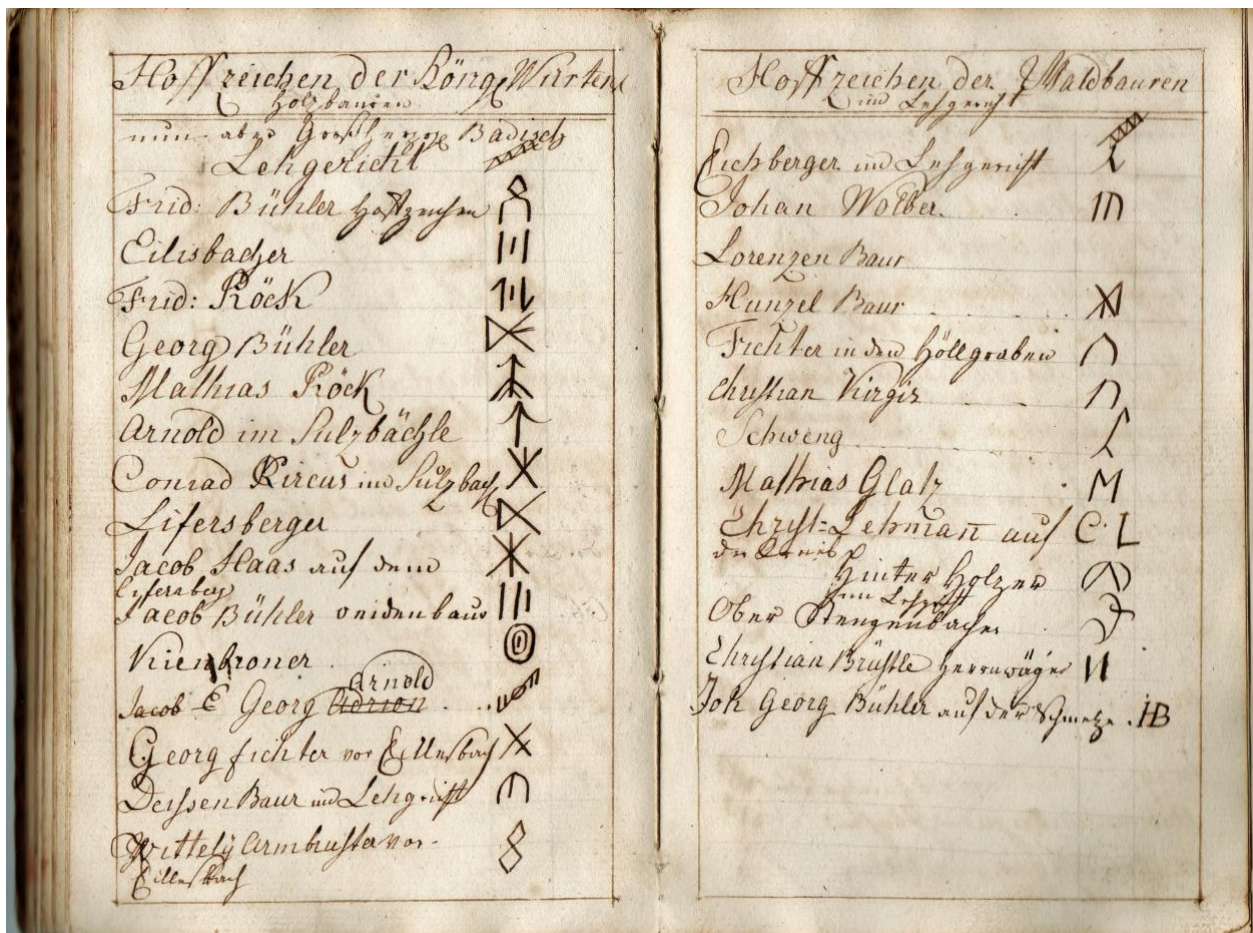 Hoffzeichen der Köngl Würten
Holzbauren
nun aber Großherzogl Badisch
Lehgericht
Frid: Bühler Hoffzeichen
Eilisbacher
Frid: Röck
Georg Bühler
Mathias Röck
Arnold im Sulzbächle
Conrad Circus im Sulzbach
Lifersberger
Jacob Haas auf dem
Lifersberg
Jacob Bühler
Kienbroner
Arnold
Jacob E Georg Adrion
Georg fichter vor Eillesbach
Deissen Baur Lehgericht
Armbruster vor
Eillesbach
Hoffzeichen der Waldbauren
Lehgericht
Eichberger Lehgericht
Johan Wolber
Lorenzen Baur
Hunzel Baur
Fichter in den Höllgraben
Christian
Schweng
Mathias Glatz M
Christ= Lehmañ auf C·L
Hinter Holzer
Ober
Christian Brüstle
Joh Georg Bühler auf der HB